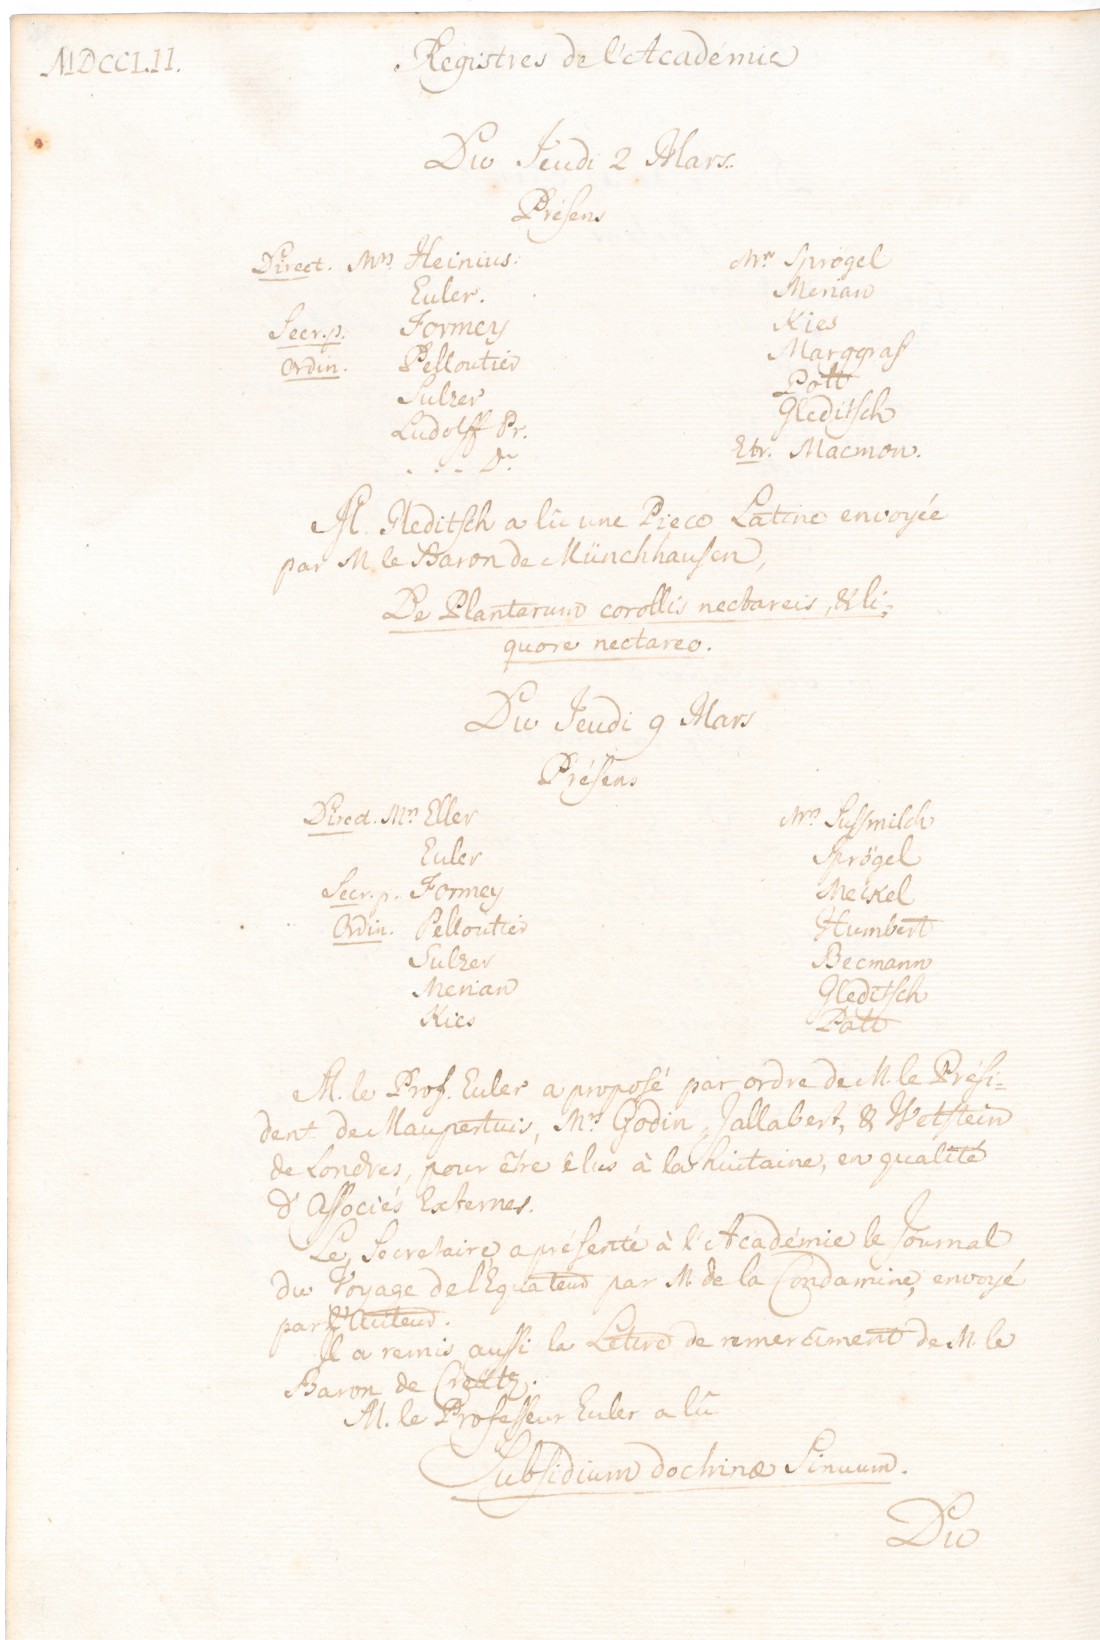 MDCCLII.
Registres de l'Académie
Du Jeudi 2 Mars.
Présens
Direct. Mrs Heinius.
Euler.
Secr. p. Formey
Ordin. Pelloutier
Sulzer
Ludolff Pr.
. . . . Dr.
Mrs Sprögel
Merian
Kies
Marggraf
Pott
Gleditsch
Etr. Macmon.
M. Gleditsch a lû une Piece Latine envoyée
par M. le Baron de Münchhausen,
De Plantarum corollis nectareis, & li-
quore nectareo.
Du Jeudi 9 Mars
Présens
Direct. Mrs Eller
Euler
Secr. p. Formey
Ordin. Pelloutier
Sulzer
Merian
Kies
Mrs Sussmilch
Sprögel
Meckel
Humbert
Becmann
Gleditsch
Pott
M. le Prof. Euler a proposé par ordre de M. le Prési-
dent de Maupertuis, Mrs Godin, Jallabert, & Wetstein
de Londres, pour être êlus à la huitaine, en qualité
d'Associés Externes.
Le Secretaire a présenté à l'Académie le Journal
du Voyage de l'Equateur par M. de la Condamine, envoyé
par l'Auteur.
Il a remis aussi la Lettre de remerciment de M. le
Baron de Creütz.
M. le Professeur Euler a lû
Subsidium doctrinæ Sinuum.
Du